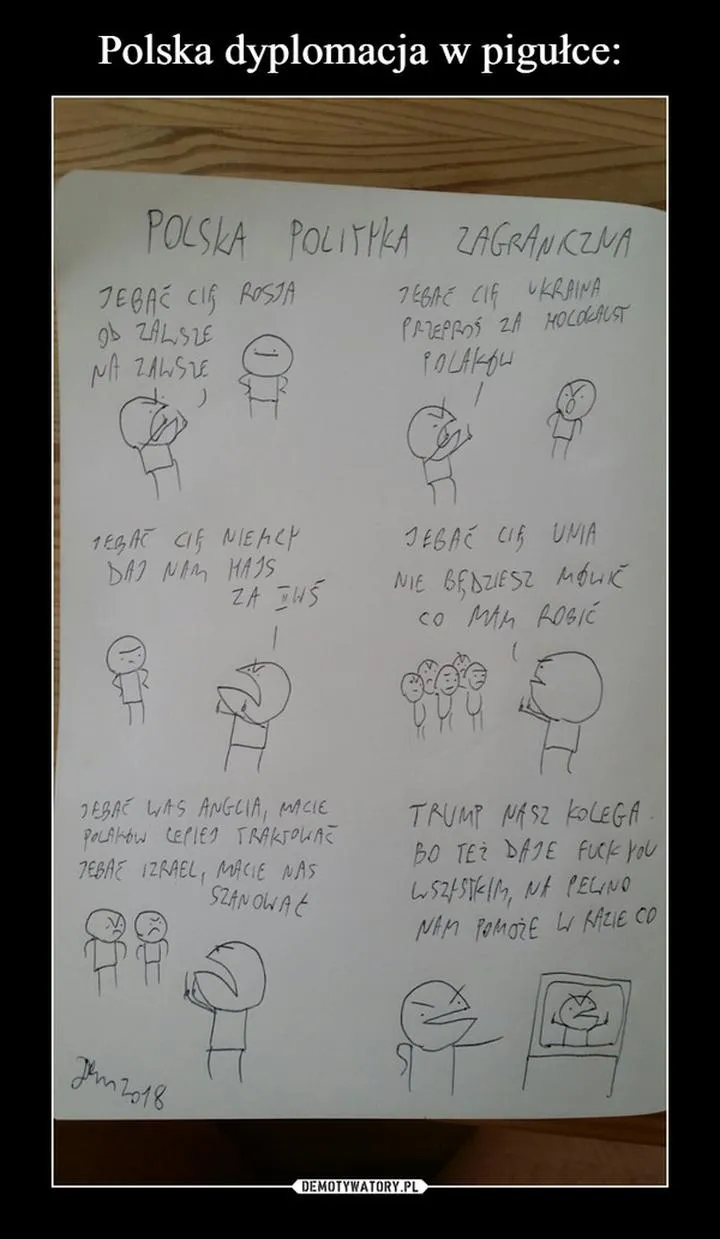 Polska dyplomacja w pigułce:
POLSKA POLITYKA ZAGRANICZNA
JEBAĆ CIĘ ROSJA
OD ZAWSZE
NA ZAWSZE
JEBAĆ CIĘ UKRAINA
PRZEPROŚ ZA HOLOKAUST
POLAKÓW
JEBAĆ CIĘ NIEMCY
DAJ NAM HAJS
ZA IIWŚ
JEBAĆ CIĘ UNIA
NIE BĘDZIESZ MÓWIĆ
CO MAM ROBIĆ
JEBAĆ WAS ANGLIA, MACIE
POLAKÓW LEPIEJ TRAKTOWAĆ
JEBAĆ IZRAEL, MACIE NAS
SZANOWAĆ
TRUMP NASZ KOLEGA
BO TEŻ DAJE FUCK YOU
WSZYSTKIM, NA PEWNO
NAM POMOŻE W RAZIE CO
2018
DEMOTYWATORY.PL